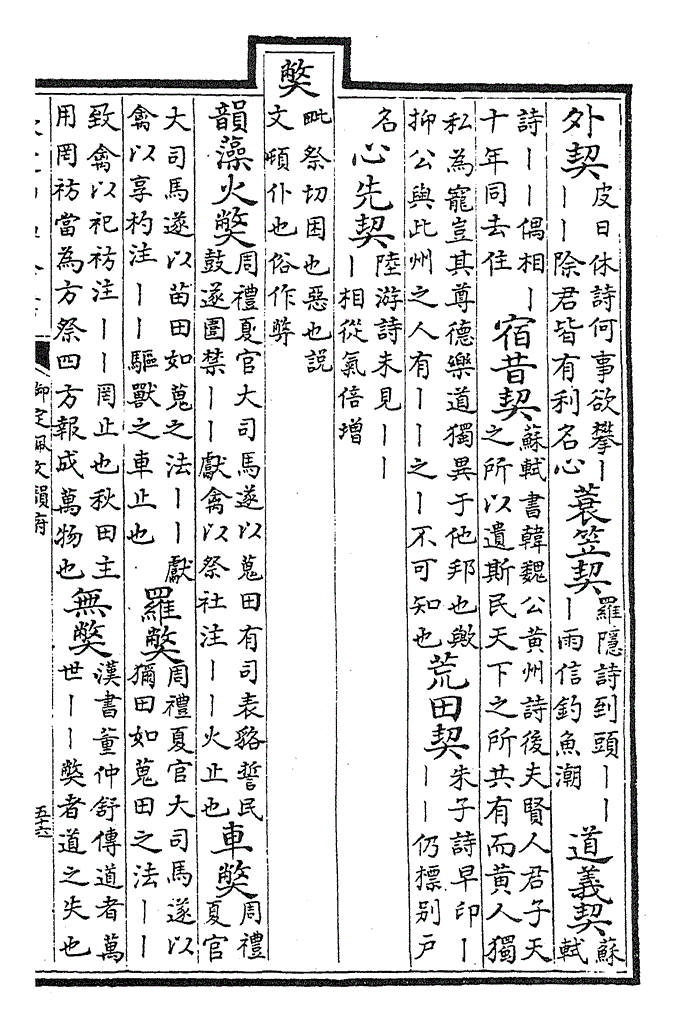 外契皮日休詩何事欲攀丨丨丨除君皆有利名心蓑笠契羅隱詩到頭丨丨丨雨信釣魚潮道義契蘇軾
詩丨丨偶相丨十年同去住宿昔契蘇軾書韓魏公黄州詩後夫賢人君子天之所以遺斯民天下之所共有而黄人獨
私為寵豈其尊德樂道獨異于他邦也歟抑公與此州之人有丨丨之丨不可知也荒田契朱子詩早印丨丨丨仍摽别戶
名心先契陸游詩未見丨丨丨相從氣倍增
獘
毗祭切困也惡也說文頓仆也俗作弊
韻藻火獘周禮夏官大司馬遂以蒐田有司表貉誓民鼓遂圍禁丨丨獻禽以祭社注丨丨火止也車獘周禮夏官
大司馬遂以苗田如蒐之法丨丨獻禽以享礿注丨丨驅獸之車止也羅獘周禮夏官大司馬遂以獮田如蒐田之法丨丨
致禽以祀祊注丨丨罔止也秋田主用罔祊當為方祭四方報成萬物也無獘漢書董仲舒傳道者萬世丨丨獘者道之失也
御定佩文韻府